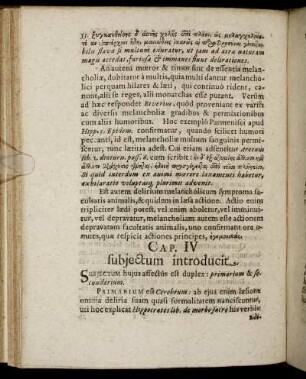 bilis flava si multum exuratur, ut jam ad atra naturam
magis accedat, furiosæ & immanes fiunt delirationes.
An autem mœror & timor sint de essentia melan-
choliæ, dubitatur à multis, quia multi dantur melancho-
lici perquam hilares & læti, qui continuò rident, ca-
nunt, alii se reges, alii monarchas esse putant. Verùm
ad hæc respondet quod proveniat ex variis
ac diversis melancholiæ gradibus & permistionibus
cum aliis humoribus. Hoc exemplò Parmenisci apud
Hippoc. Epidem. confirmatur, quando scilicet humori
pec anti, id est melancholiæ multum sanguinis permi-
scetur; hinc lætitia adest. Cui etiam adsentitur
lib.
Si quid interdum ex animi mœrore levamenti habetur,
exhilaratio voluptasq; plurimos advenit.
Est autem delirium melancholicum symptoma fa-
cultatis animalis, & quidem in læsa actione. Actio enim
tripliciter lædi potest, vel enim aboletur, vel imminui-
tur, vel depravatur, melancholiam autem esse actionem
depravatam facultatis animalis, uno confirmant ore o-
mnes, quæ respicit actiones principes,
CAP. IV
subjectum introducit.
SUBJECTUM hujus affectus est duplex: primarium & se-
cundarium.
PRIMARIUM est Cerebrum: ab ejus enim læsione
omnia deliria suam quasi formalitatem nanciscuntur,
uti hoc explicat Hippocrates lib. de morbo sacro his verbis: